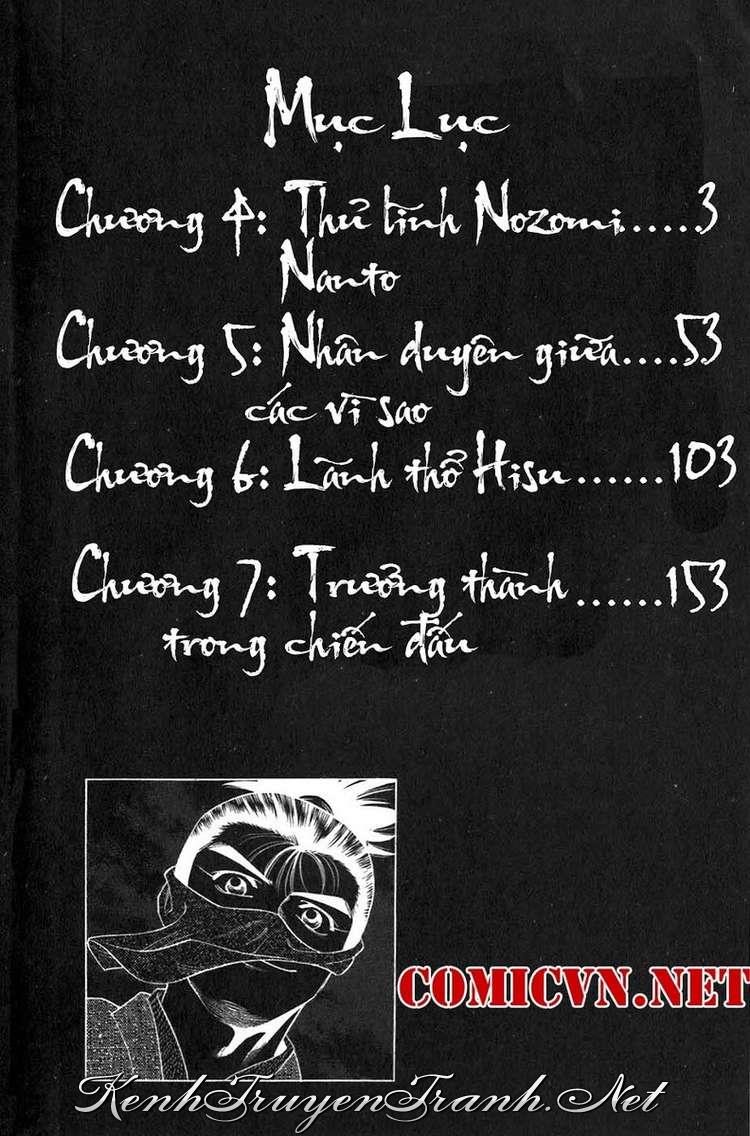 Mục Lục
Chương 4: Thử tính Nozomi......3
Nanto
Chương 5: Nhân duyên giữa....53
các vì sao
Chương 6: Lãnh thổ Hisu......103
Chương 7: Trưởng thành......153
trong chiến đấu
COMICVN.NET
KenhTruyenTranh.Net